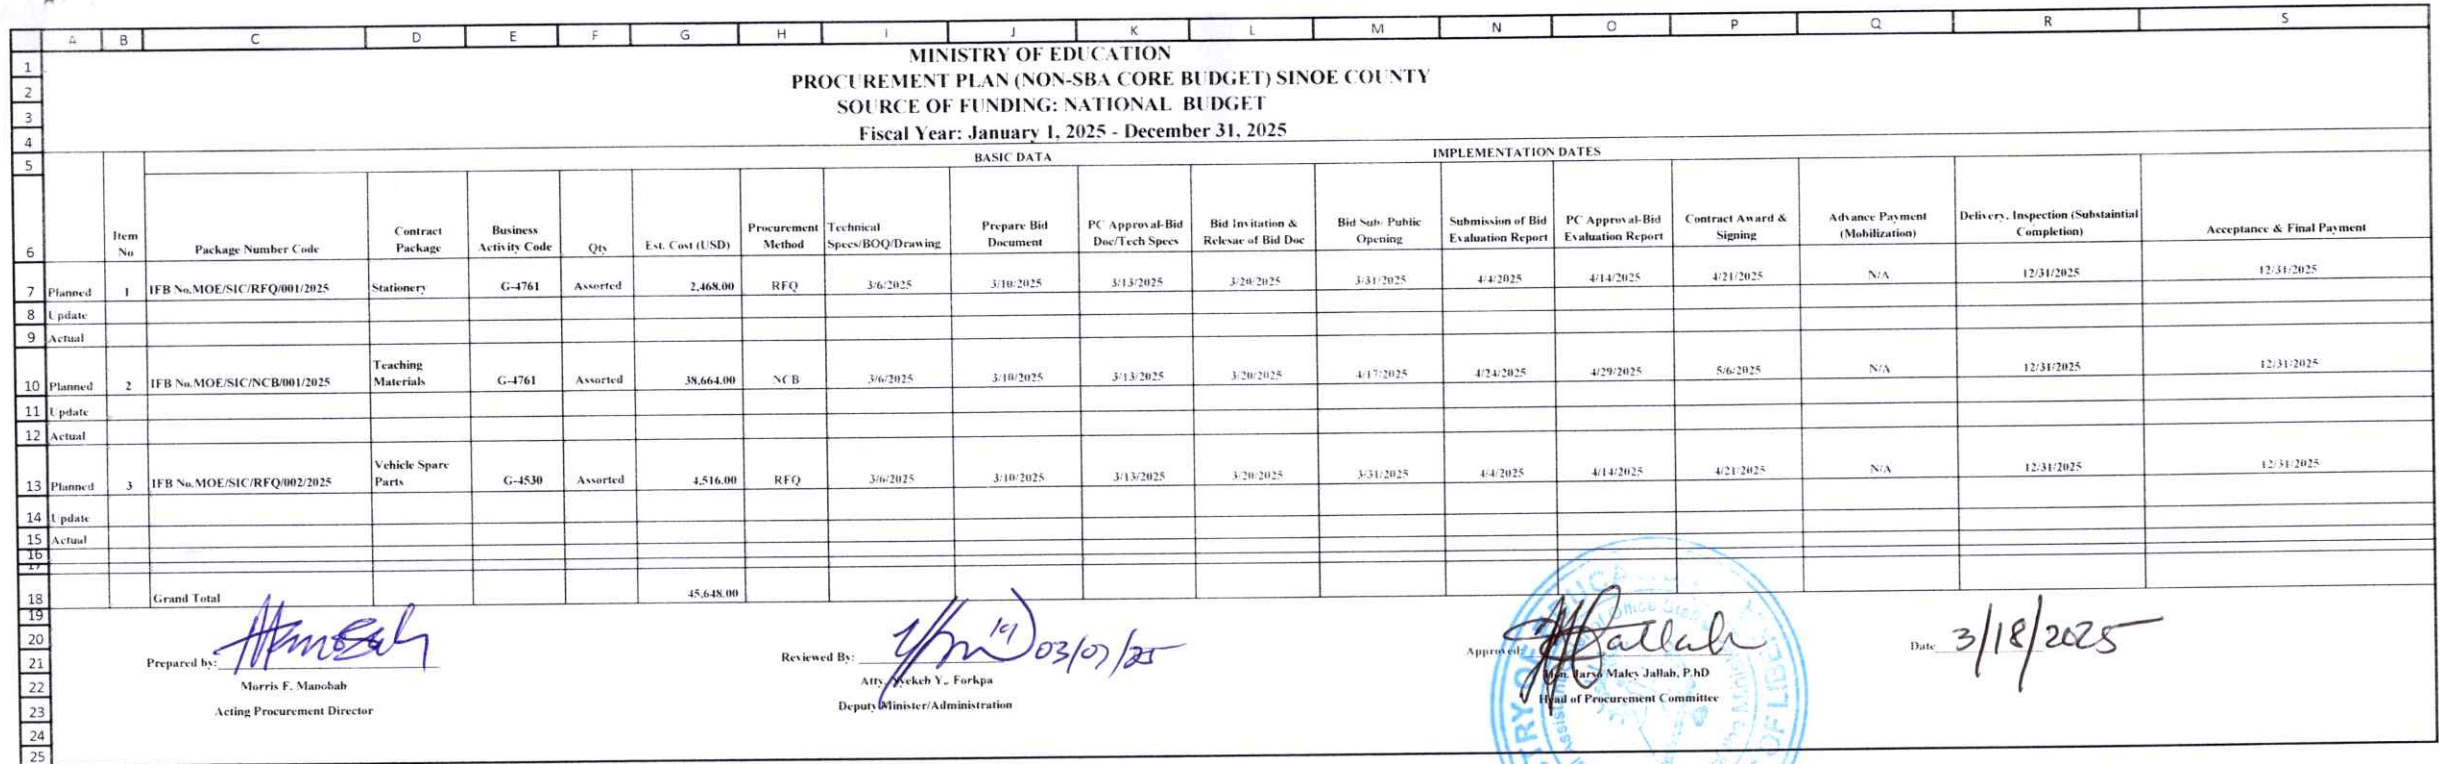 A B C D E F G H I J K L M N O P Q R S
1 MINISTRY OF EDUCATION
2 PROCUREMENT PLAN (NON-SBA CORE BUDGET) SINOE COUNTY
3 SOURCE OF FUNDING: NATIONAL BUDGET
4 Fiscal Year: January 1, 2025 - December 31, 2025
5 BASIC DATA IMPLEMENTATION DATES
6 Item No Package Number Code Contract Package Business Activity Code Qty Est. Cost (USD) Procurement Method Technical Specs/BOQ/Drawing Prepare Bid Document PC Approval-Bid Doc/Tech Specs Bid Invitation & Relesae of Bid Doc Bid Sub/ Public Opening Submission of Bid Evaluation Report PC Approval-Bid Evaluation Report Contract Award & Signing Advance Payment (Mobilization) Delivery, Inspection (Substaintial Completion) Acceptance & Final Payment
7 Planned 1 IFB No.MOE/SIC/RFQ/001/2025 Stationery G-4761 Assorted 2,468.00 RFQ 3/6/2025 3/10/2025 3/13/2025 3/20/2025 3/31/2025 4/4/2025 4/14/2025 4/21/2025 N/A 12/31/2025 12/31/2025
8 Update
9 Actual
10 Planned 2 IFB No.MOE/SIC/NCB/001/2025 Teaching Materials G-4761 Assorted 38,664.00 NCB 3/6/2025 3/10/2025 3/13/2025 3/20/2025 4/17/2025 4/24/2025 4/29/2025 5/6/2025 N/A 12/31/2025 12/31/2025
11 Update
12 Actual
13 Planned 3 IFB No.MOE/SIC/RFQ/002/2025 Vehicle Spare Parts G-4530 Assorted 4,516.00 RFQ 3/6/2025 3/10/2025 3/13/2025 3/20/2025 3/31/2025 4/4/2025 4/14/2025 4/21/2025 N/A 12/31/2025 12/31/2025
14 Update
15 Actual
16
17
18 Grand Total 45,648.00
19
20
21 Prepared by: Reviewed By: 03/07/25 Approved: Jallah Date 3/18/2025
22 Morris F. Manobah Atty. Yvekeh Y. Forkpa Hon. Jarso Maley Jallah, P.hD
23 Acting Procurement Director Deputy Minister/Administration Head of Procurement Committee
24
25